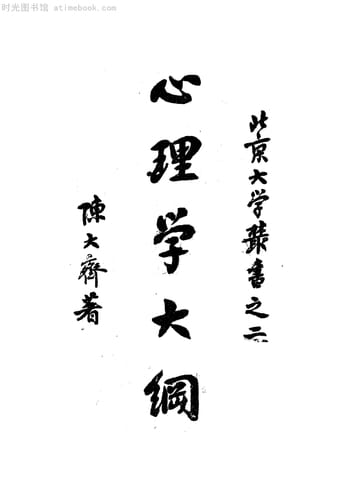 时光图书馆 atimebook.com
北京大学叢書之二
心理学大綱
陳大齊著